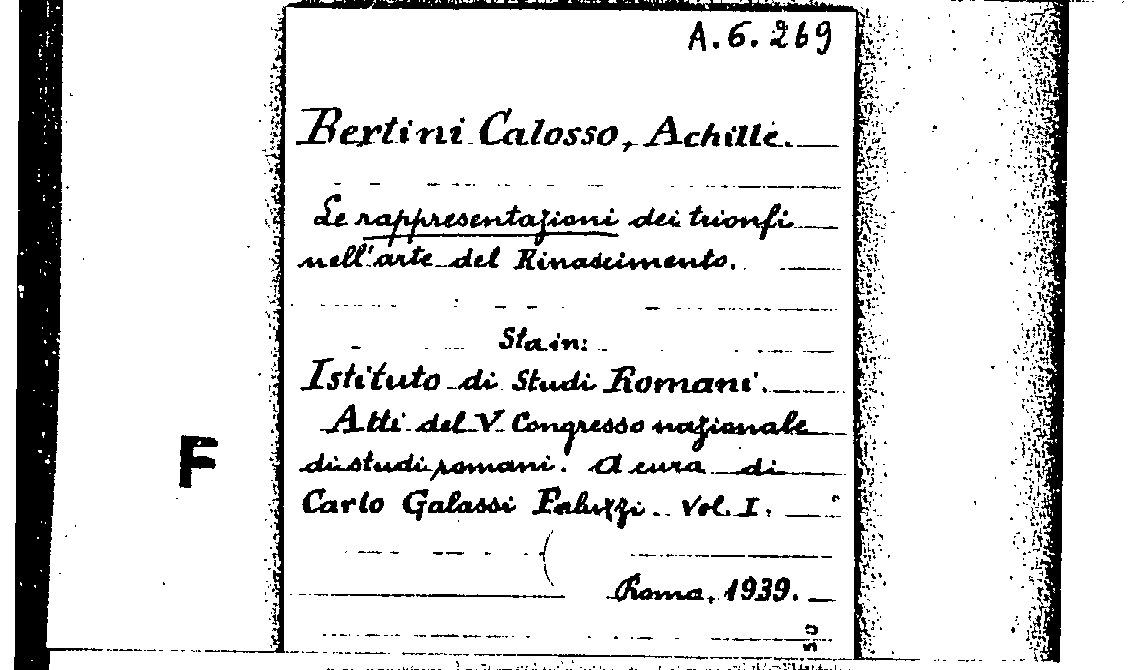 A. 6. 269
Bertini Calosso, Achille.
Le rappresentazioni dei trionfi
nell'arte del Rinascimento.
Sta in:
Istituto di Studi Romani.
Atti del V Congresso nazionale
di studi romani. A cura di
F
Carlo Galassi Paluzzi. Vol. I.
Roma, 1939.
50